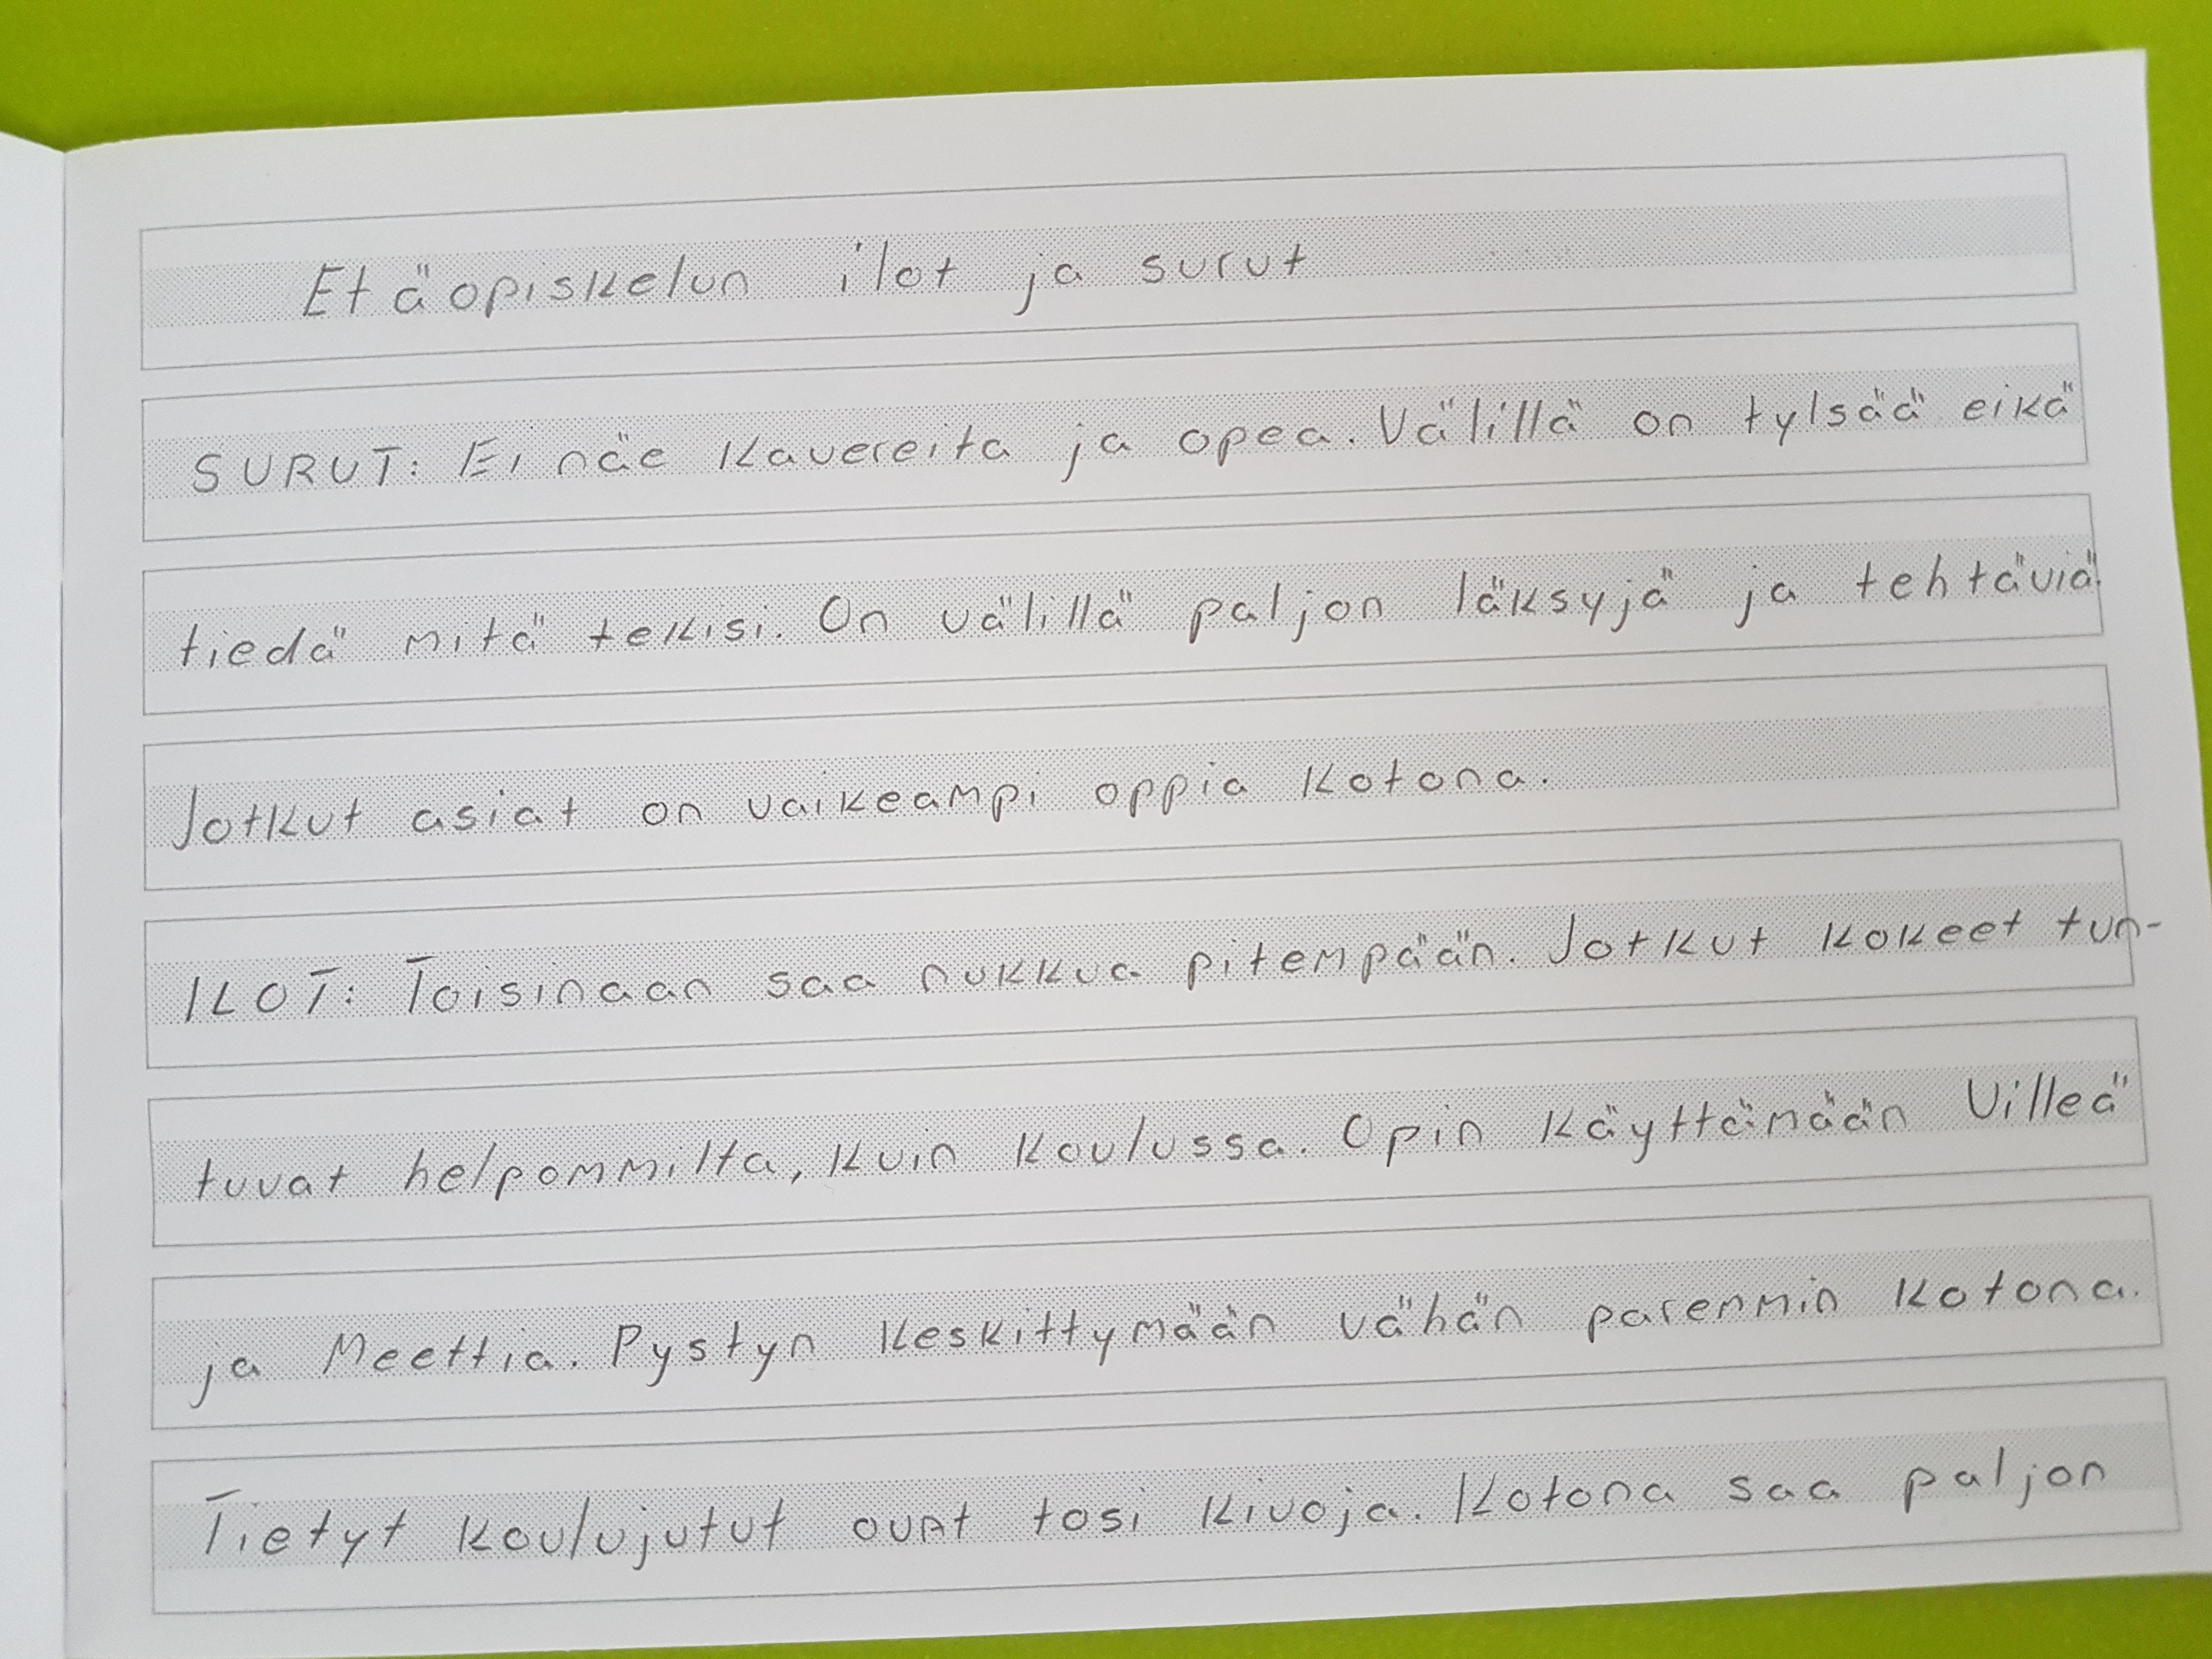 Etäopiskelun ilot ja surut
SURUT: Ei näe kavereita ja opea. Välillä on tylsää eikä
tiedä mitä tekisi. On välillä paljon läksyjä ja tehtäviä.
Jotkut asiat on vaikeampi oppia kotona.
ILOT: Toisinaan saa nukkua pitempään. Jotkut kokeet tun-
tuvat helpommilta, kuin koulussa. Opin käyttämään Villeä
ja Meettia. Pystyn keskittymään vähän paremmin kotona.
Tietyt koulujutut ovat tosi kivoja. Kotona saa paljon